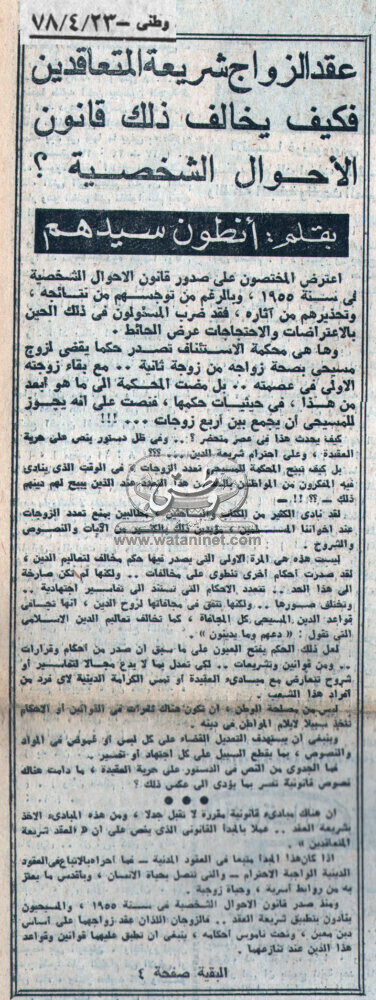 وطنى - ٧٨/٤/٢٣
عقد الزواج شريعة المتعاقدين
فكيف يخالف ذلك قانون
الأحوال الشخصية ؟
بقلم : أنطون سيدهم
اعترض المختصون على صدور قانون الاحوال الشخصية
فى سنة ١٩٥٥ ، وبالرغم من توجسهم من نتائجه ،
وتحذيرهم من آثاره ، فقد ضرب المسئولون فى ذلك الحين
بالاعتراضات والاحتجاجات عرض الحائط .
وها هى محكمة الاستئناف تصدر حكما يقضى لزوج
مسيحى بصحة زواجه من زوجة ثانية .. مع بقاء زوجته
الاولى فى عصمته .. بل مضت المحكمة الى ما هو ابعد
من هذا ، فى حيثيات حكمها ، فنصت على انه يجوز
للمسيحى أن يجمع بين أربع زوجات ... !!!
كيف يحدث هذا فى عصر متحضر ؟ .. وفى ظل دستور ينص على حرية
العقيدة ، وعلى احترام شريعة الدين .... ؟؟؟
بل كيف تبيح المحكمة للمسيحى تعدد الزوجات « فى الوقت الذى ينادى
فيه المفكرون من المواطنين بالحد من هذا التعدد عند الذين يبيح لهم دينهم
ذلك - ؟؟ !! -
لقد نادى الكثير من الكتاب والباحثين مطالبين بمنع تعدد الزوجات
عند اخواننا المسلمين ، مؤيدين ذلك بالكثير من الآيات والنصوص
والشروح .
وطنى
www.wataninet.com
ليست هذه هى المرة الاولى التى يصدر فيها حكم مخالف لتعاليم الدين ،
لقد صدرت أحكام أخرى تنطوى على مخالفات .. ولكنها لم تكن صارخة
الى هذا الحد .. تتعدد الاحكام التى تستند الى تفاسير اجتهادية ..
وتختلف صورها .. ولكنها تتفق فى مجافاتها لروح الدين ، انها تجافى
قواعد الدين المسيحى كل المجافاة ، كما تخالف تعاليم الدين الاسلامى
التى تقول : « دعهم وما يدينون » .
لعل ذلك الحكم يفتح العيون على ما سبق ان صدر من احكام وقرارات
.. ومن قوانين وتشريعات .. لكى تعدل بما لا يدع مجالا لتفاسير أو
شروح تتعارض مع مبادىء العقيدة أو تمس الكرامة الدينية لاى فرد من
أفراد هذا الشعب .
ليس من مصلحة الوطن ، أن تكون هناك ثغرات فى القوانين أو الاحكام
تتخذ سبيلا لايلام المواطن فى دينه .
وينبغى ان يستهدف التعديل القضاء على كل لبس أو غموض فى المواد
والنصوص ، بما يقطع السبيل على كل اجتهاد أو تفسير .
فما الجدوى من النص فى الدستور على حرية العقيدة ، ما دامت هناك
نصوص قانونية تفسر بما يؤدى الى عكس ذلك ؟
● ● ●
ان هناك مبادىء قانونية مقررة لا تقبل جدلا ، ومن هذه المبادىء الاخذ
بشريعة العقد .. عملا بالمبدأ القانونى الذى ينص على ان « العقد شريعة
المتعاقدين » .
اذا كان هذا المبدأ متبعا فى العقود المدنية - فما احراه بالاتباع فى العقود
الدينية الواجبة الاحترام - والتى تتصل بحياة الانسان ، وباقدس ما يعتز
به من روابط أسرية ، وحياة زوجية .
ومنذ صدر قانون الاحوال الشخصية فى سنة ١٩٥٥ ، والمسيحيون
ينادون بتطبيق شريعة العقد .. فالزوجان اللذان عقد زواجهما على أساس
دين معين ، وتحت ناموس أحكامه ، ينبغى ان تطبق عليهما قوانين وقواعد
هذا الدين عند تنازعهما .
البقية صفحة ٤